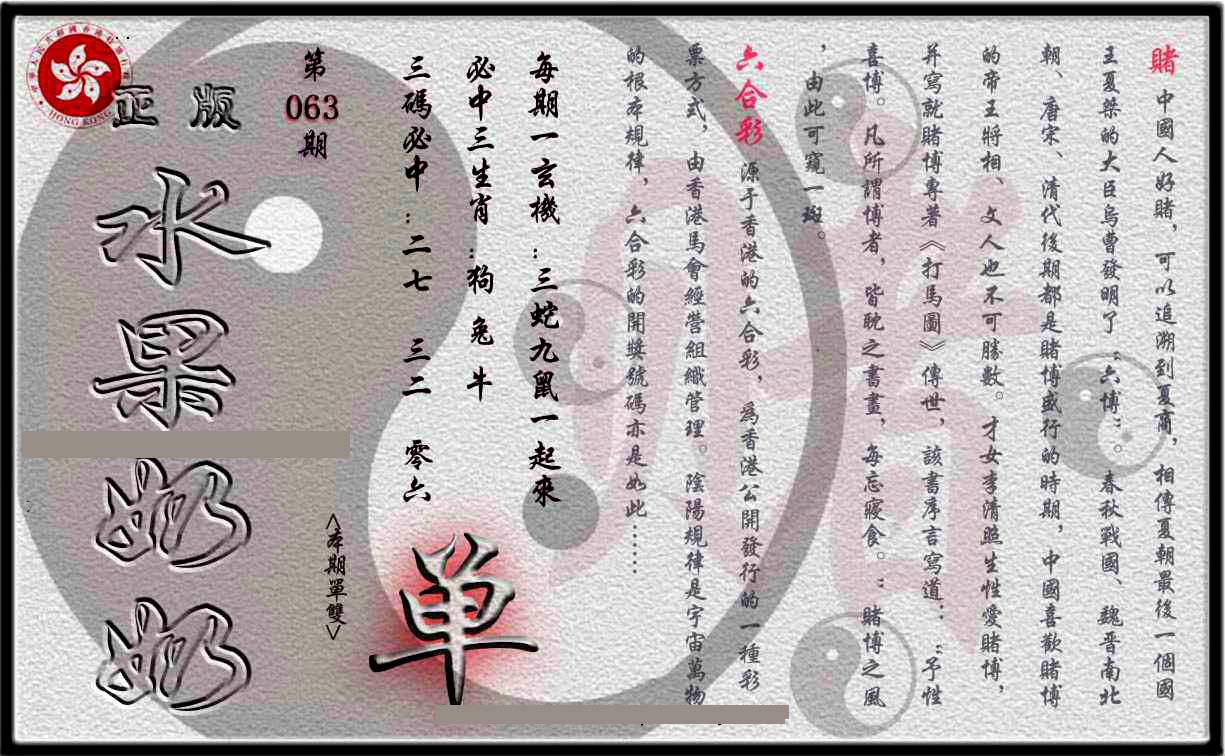 賭 中國人好賭，可以追溯到夏商，相傳夏朝最後一個國
王夏桀的大臣烏曹發明了“六博”。春秋戰國、魏晋南北
朝、唐宋、清代後期都是賭博盛行的時期，中國喜歡賭博
的帝王將相、文人也不可勝數。才女李清照生性愛賭博，
并寫就賭博專著《打馬圖》傳世，該書序言寫道：“予性
喜博。凡所謂博者，皆耽之書晝，每忘寢食。”賭博之風
，由此可窺一斑。
六合彩 源于香港的六合彩，為香港公開發行的一種彩
票方式，由香港馬會經營組織管理。陰陽規律是宇宙萬物
的根本規律，六合彩的開獎號碼亦是如此……
每期一玄機：三蛇九鼠一起來
必中三生肖：狗 兔 牛
三碼必中：二七 三二 零六
单
<本期單雙>
第
063
期
正版
水果奶奶
HONG KONG